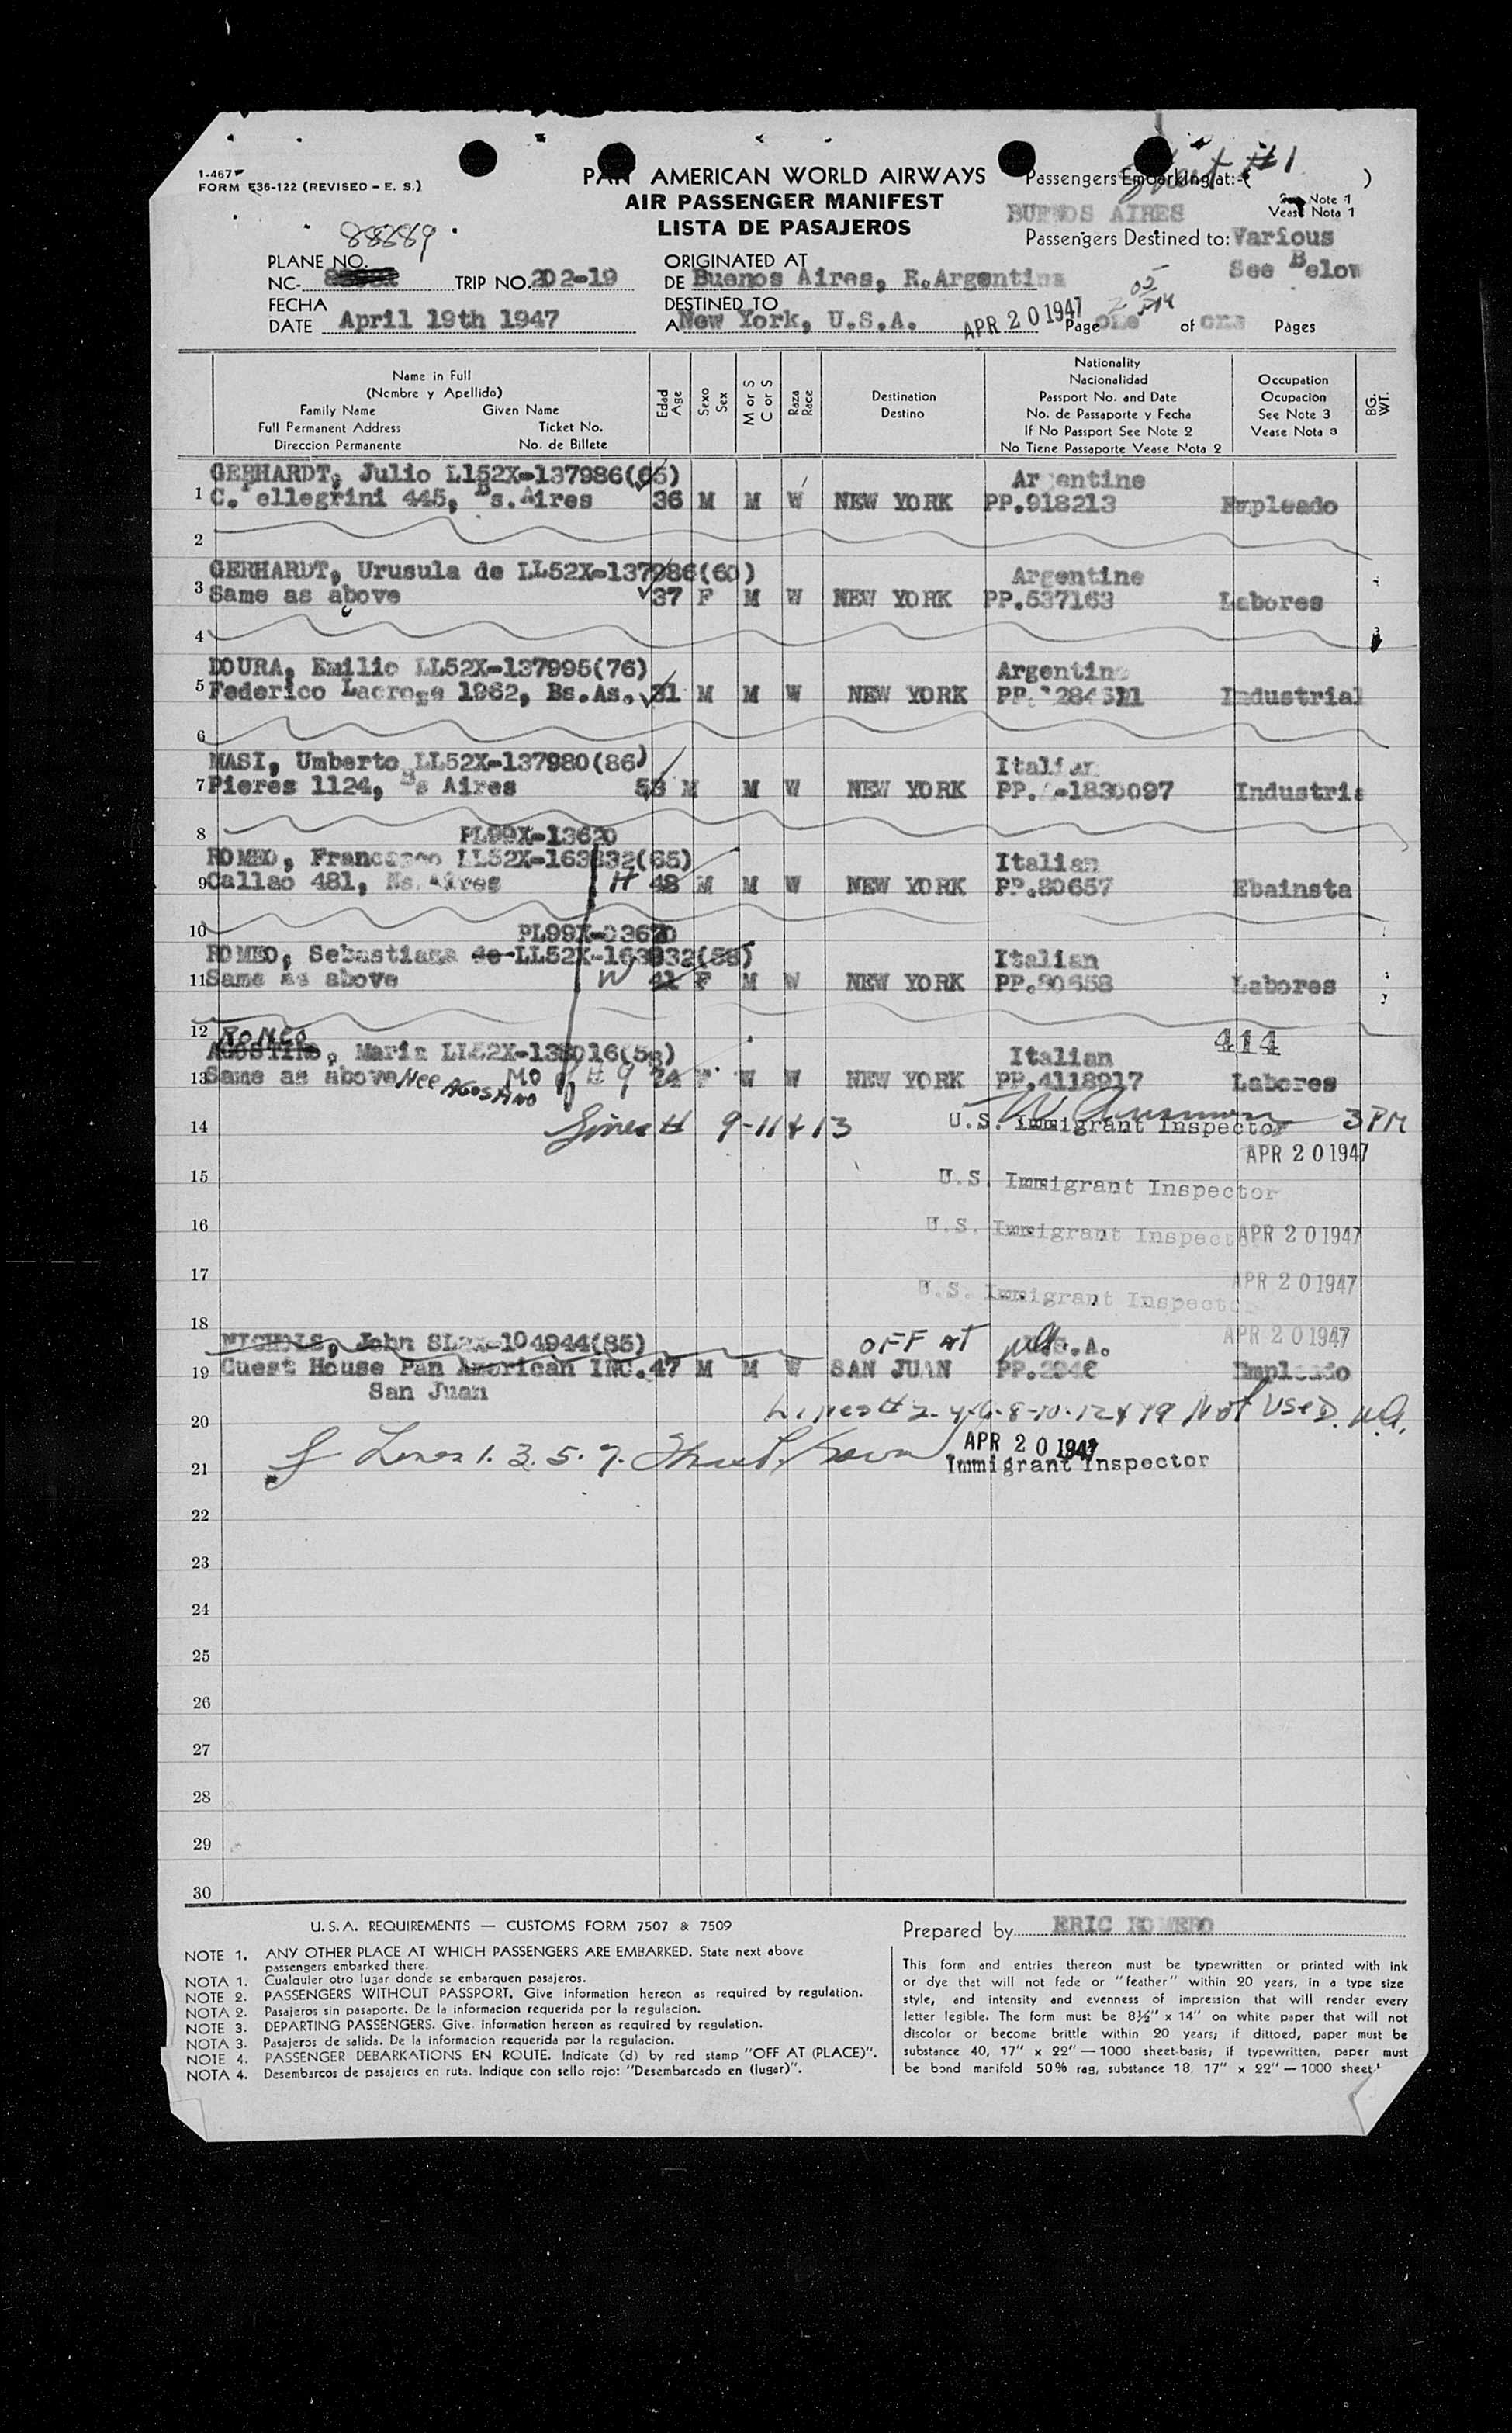 1-467
FORM E36-122 (REVISED - E. S.)
PAN AMERICAN WORLD AIRWAYS
AIR PASSENGER MANIFEST
LISTA DE PASAJEROS
Sheet #1
Passengers Embarking at:-( )
See Note 1
Vease Nota 1
BUENOS AIRES
Passengers Destined to: Various
See Below
88389
PLANE NO.
NC- TRIP NO. 202-19
ORIGINATED AT
DE Buenos Aires, R.Argentina
FECHA
DATE April 19th 1947
DESTINED TO
A New York, U.S.A.
APR 20 1947
Page one of one Pages
Name in Full
(Nombre y Apellido)
Family Name Given Name
Full Permanent Address Ticket No.
Direccion Permanente No. de Billete
Edad
Age
Sexo
Sex
M or S
C or S
Raza
Race
Destination
Destino
Nationality
Nacionalidad
Passport No. and Date
No. de Passaporte y Fecha
If No Passport See Note 2
No Tiene Passaporte Vease Nota 2
Occupation
Ocupacion
See Note 3
Vease Nota 3
BG.
WT.
GERHARDT, Julio LL52X-137986(65) Argentine
1 C. Pellegrini 445, Bs.Aires 36 M M W NEW YORK PP.918213 Empleado
2
GERHARDT, Urusula de LL52X-137986(60) Argentine
3 Same as above 37 F M W NEW YORK PP.537163 Labores
4
DOURA, Emilio LL52X-137995(76) Argentine
5 Federico Lacroze 1962, Bs.As. 31 M M W NEW YORK PP. Industrial
6
MASI, Umberto LL52X-137980(86) Italian
7 Pieres 1124, Bs Aires 53 M M W NEW YORK PP. -1830097 Industria
8 PL99X-13620
ROMEO, Francesco LL52X-163832(65) Italian
9 Callao 481, Bs.Aires H 48 M M W NEW YORK PP.80657 Ebainsta
10 PL99X-03670
ROMEO, Sebastiana de LL52X-163832(58) Italian
11 Same as above W 41 F M W NEW YORK PP.80658 Labores
12 ROMEO 414
AGOSTINO, Maria LL52X-138016(58) Italian
13 Same as above Nee AGOSTINO MO #9 24 F W W NEW YORK PP.4118917 Labores
14 Lines # 9-11 & 13 U.S. Immigrant Inspector 3 PM
APR 20 1947
15 U.S. Immigrant Inspector
16 U.S. Immigrant Inspector APR 20 1947
17 APR 20 1947
U.S. Immigrant Inspector
18 APR 20 1947
NICHOLS, John SL2X-104944(85) OFF AT U.S.A.
19 Guest House Pan American INC. 47 M M W SAN JUAN PP.2946 Empleado
San Juan
20 Lines # 2-4-6-8-10-12 & 19 Not Used. W.A.
Lines 1. 3. 5. 7. APR 20 1947
21 Immigrant Inspector
22
23
24
25
26
27
28
29
30
U.S.A. REQUIREMENTS — CUSTOMS FORM 7507 & 7509
NOTE 1. ANY OTHER PLACE AT WHICH PASSENGERS ARE EMBARKED. State next above
passengers embarked there.
NOTA 1. Cualquier otro lugar donde se embarquen pasajeros.
NOTE 2. PASSENGERS WITHOUT PASSPORT. Give information hereon as required by regulation.
NOTA 2. Pasajeros sin pasaporte. De la informacion requerida por la regulacion.
NOTE 3. DEPARTING PASSENGERS. Give information hereon as required by regulation.
NOTA 3. Pasajeros de salida. De la informacion requerida por la regulacion.
NOTE 4. PASSENGER DEBARKATIONS EN ROUTE. Indicate (d) by red stamp "OFF AT (PLACE)".
NOTA 4. Desembarcos de pasajeros en ruta. Indique con sello rojo: "Desembarcado en (lugar)".
Prepared by ERIC ROMERO
This form and entries thereon must be typewritten or printed with ink
or dye that will not fade or "feather" within 20 years, in a type size
style, and intensity and evenness of impression that will render every
letter legible. The form must be 8½" x 14" on white paper that will not
discolor or become brittle within 20 years; if dittoed, paper must be
substance 40, 17" x 22" — 1000 sheet-basis; if typewritten, paper must
be bond manifold 50% rag, substance 18, 17" x 22" — 1000 sheet